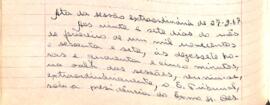 Ata da sessão extraordinária de 27-2-67
Aos vinte e sete dias do mês
de fevereiro de um mil novecentos
e sessenta e sete, às dezessete ho-
ras e quarenta e cinco minutos,
na sala das sessões, reuniu-se,
extraordinariamente, o E. Tribunal,
sob a presidência do Exmo. Sr. Des.